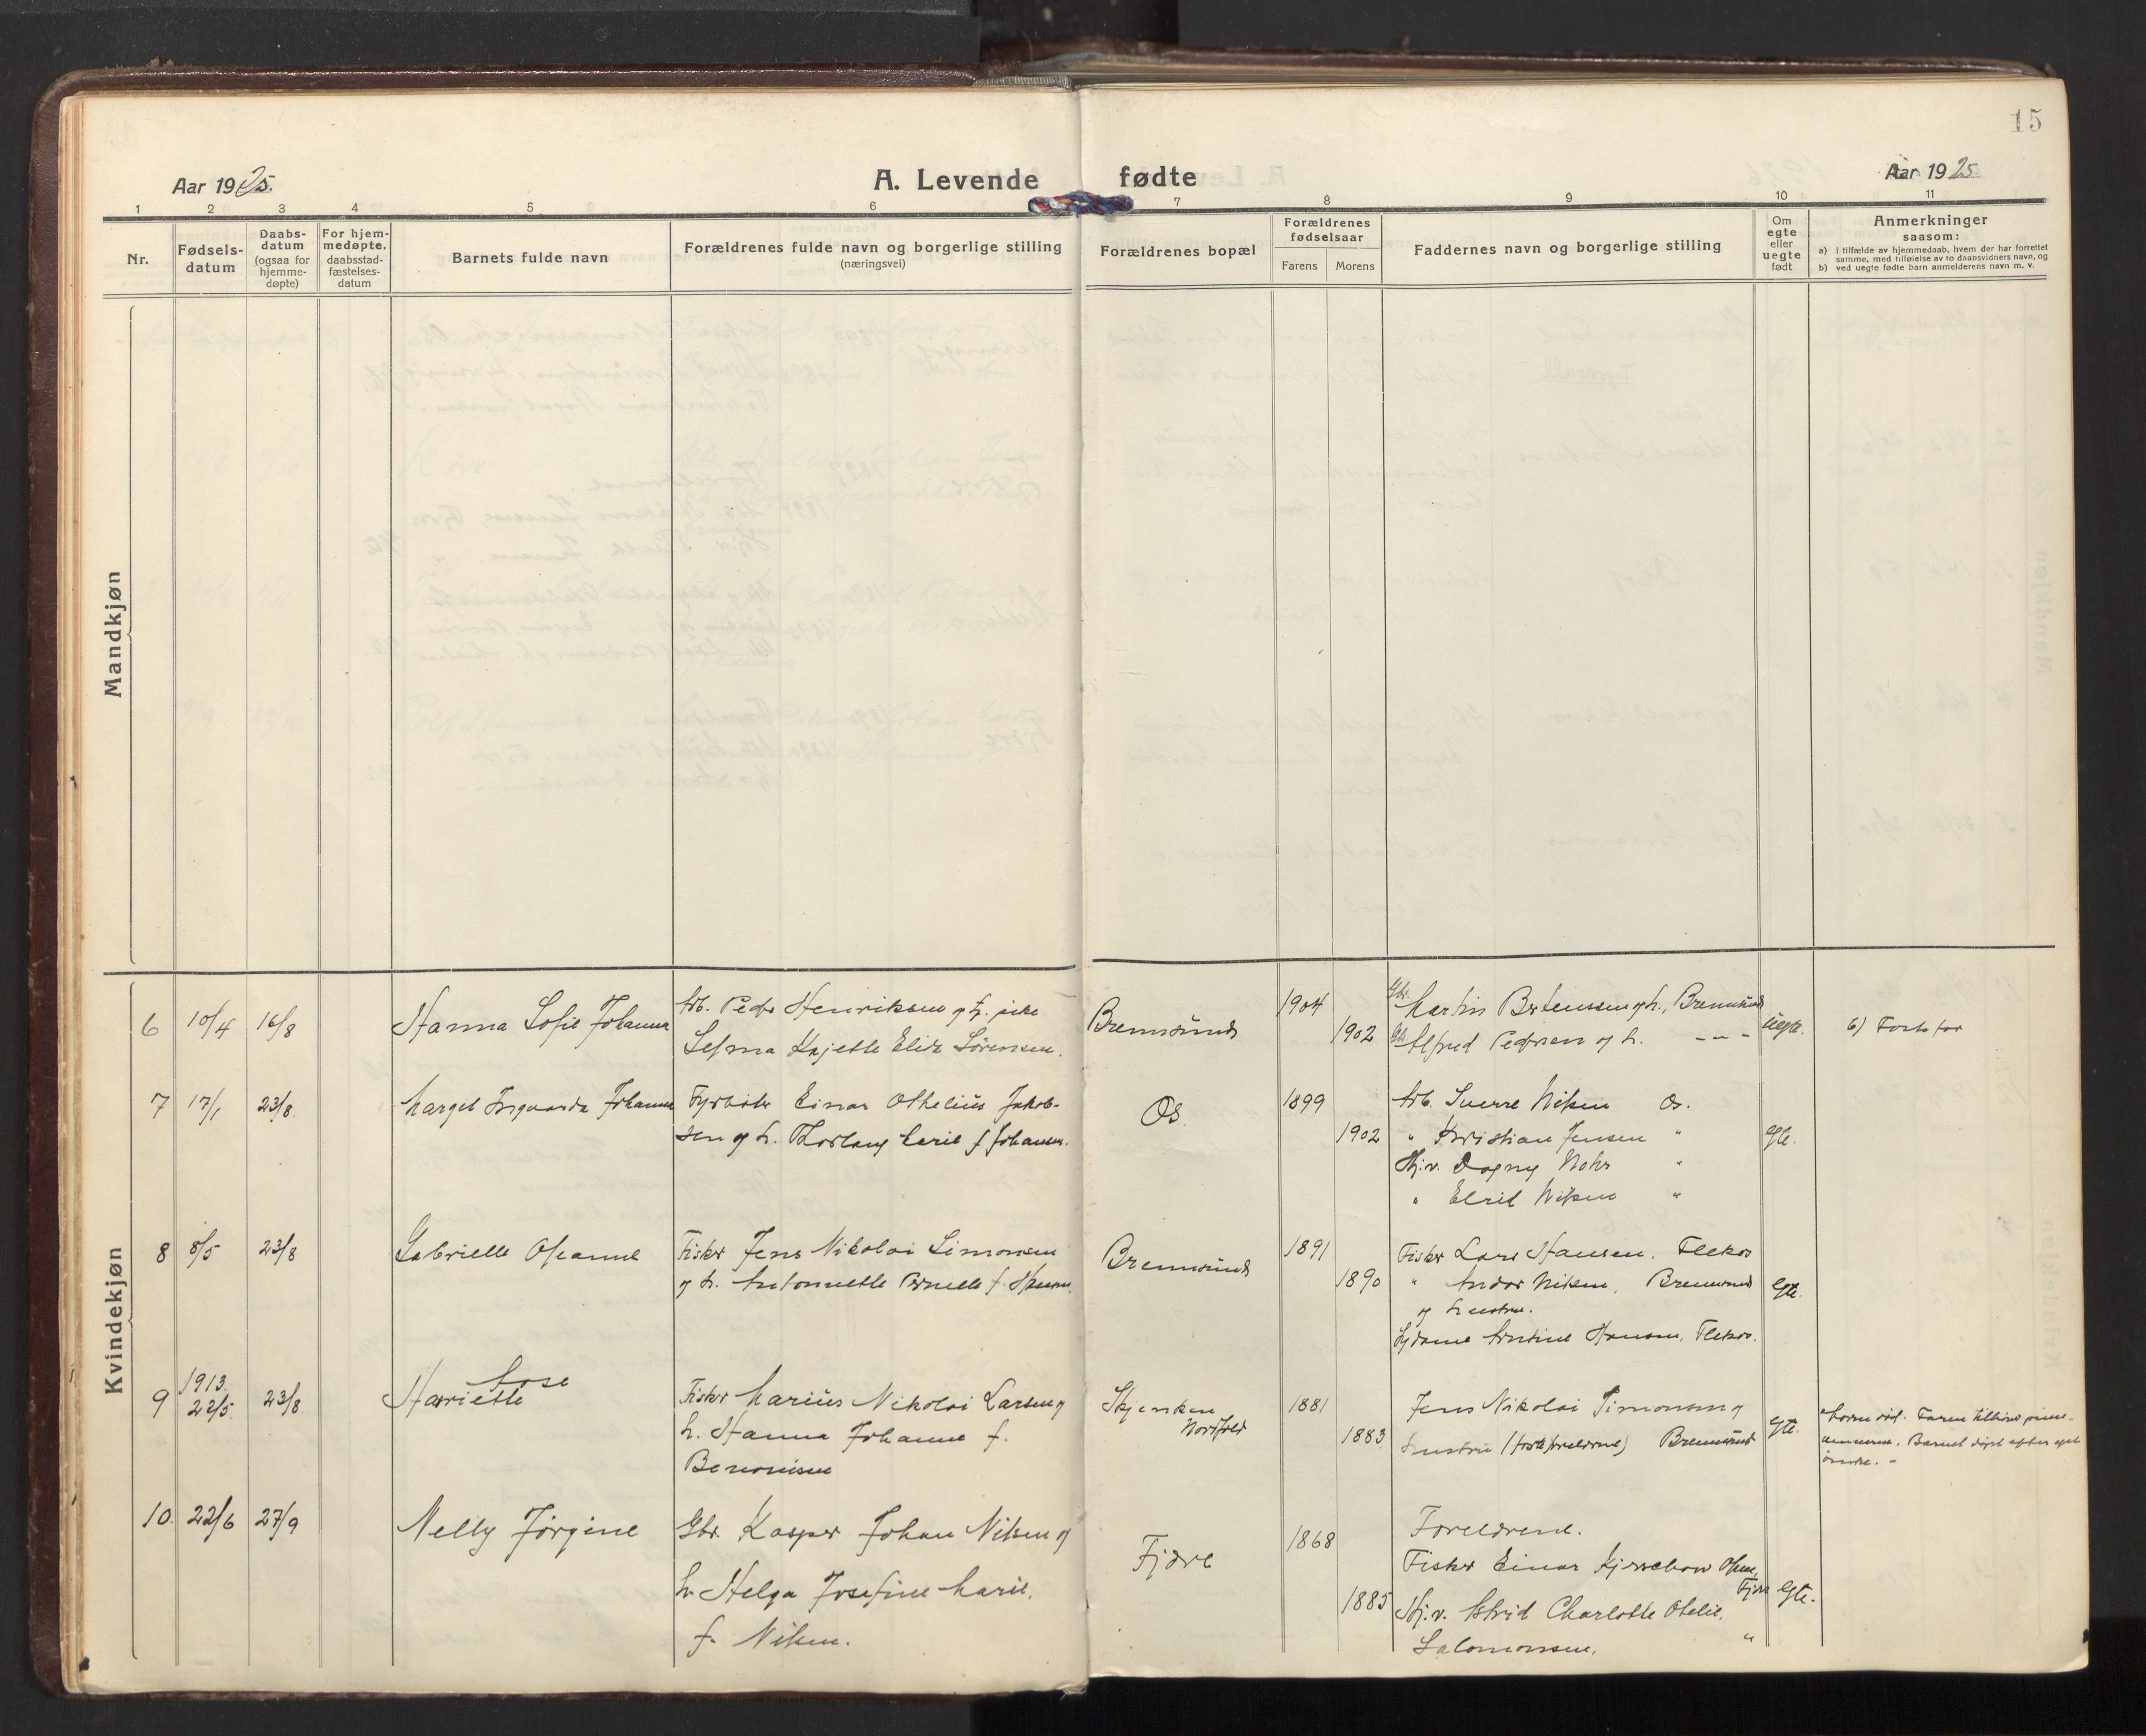 15
Aar 1925.
A. Levende fødte
Aar 1925.
1 2 3 4 5 6 7 8 9 10 11
Nr.
Fødsels-
datum
Daabs-
datum
(ogsaa for
hjemme-
døpte)
For hjem-
medøpte,
daabsstad-
fæstelses-
datum
Barnets fulde navn
Forældrenes fulde navn og borgerlige stilling
(næringsvei)
Forældrenes bopæl
Forældrenes
fødselsaar
Farens Morens
Faddernes navn og borgerlige stilling
Om
egte
eller
uegte
født
Anmerkninger
saasom:
a) i tilfælde av hjemmedaab, hvem der har forrettet
samme, med tilføielse av to daabsvidners navn, og
b) ved uegte fødte barn anmelderens navn m. v.
Mandkjøn
Kvindekjøn
6 10/4 16/8 Hanna Sofie Johanna
Arb. Peder Henriksen og f. pike
Selma Kajette Elise Sørensen.
Bremsund
1904
1902
Gbr. Martin Bertensen og h., Bremsund
Alfred Pedersen og h. - " -
uegte.
7 17/1 23/8 Margit Ingvarda Johanne
Fyrbøter Einar Othelius Jakob-
sen og h. Thorlaug Marie f Johansen.
Os
1899
1902
Arb. Sverre Nilsen Os.
" Kristian Jensen "
Hj.v. Dagny Nohr "
" Nilsen "
egte.
8 8/5 23/8 Gabrielle
Fisker Jens Nikolai Simonsen
og h. Antonette Pernelle f.
Bremsund
1891
1890
Fisker Lars Hansen, Flekos
" Andor Nilsen, Bremsund
og hustru.
Hansen, Flekos.
egte.
9 1913. 22/5. 23/8 Harriette Aase
Fisker Marius Nikolai Larsen og
h. Hanna Johanne f.
Benonisen
Skjenken
Nordfold
1881
1883
Jens Nikolai Simonsen og
hustru (fosterforeldrene) Bremsund
egte.
Moren død. Faren tilhører pinse-
vennerne. Barnet døpt efter eget
ønske. -
10. 22/6 27/9 Nelly Jørgine
Gbr. Kasper Johan Nilsen og
h. Helga Josefine Marie.
f. Nilsen.
Fjære
1868
1885
Foreldrene.
Fisker Einar
Hj.v. Astrid Charlotte Otelie.
Salomonsen. "
egte.